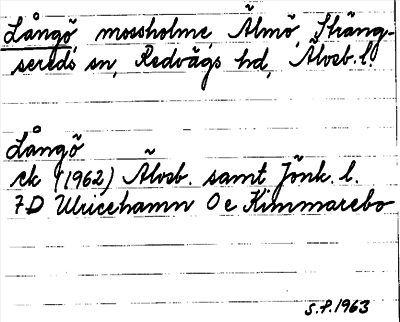 Långö, mossholme, Älmö, Sträng-
sereds sn, Redvägs hd, Älvsb. l.
Långö
ek (1962) Älvsb. samt Jönk. l.
7D Ulricehamn Oe Kimmarebo
S.F. 1963